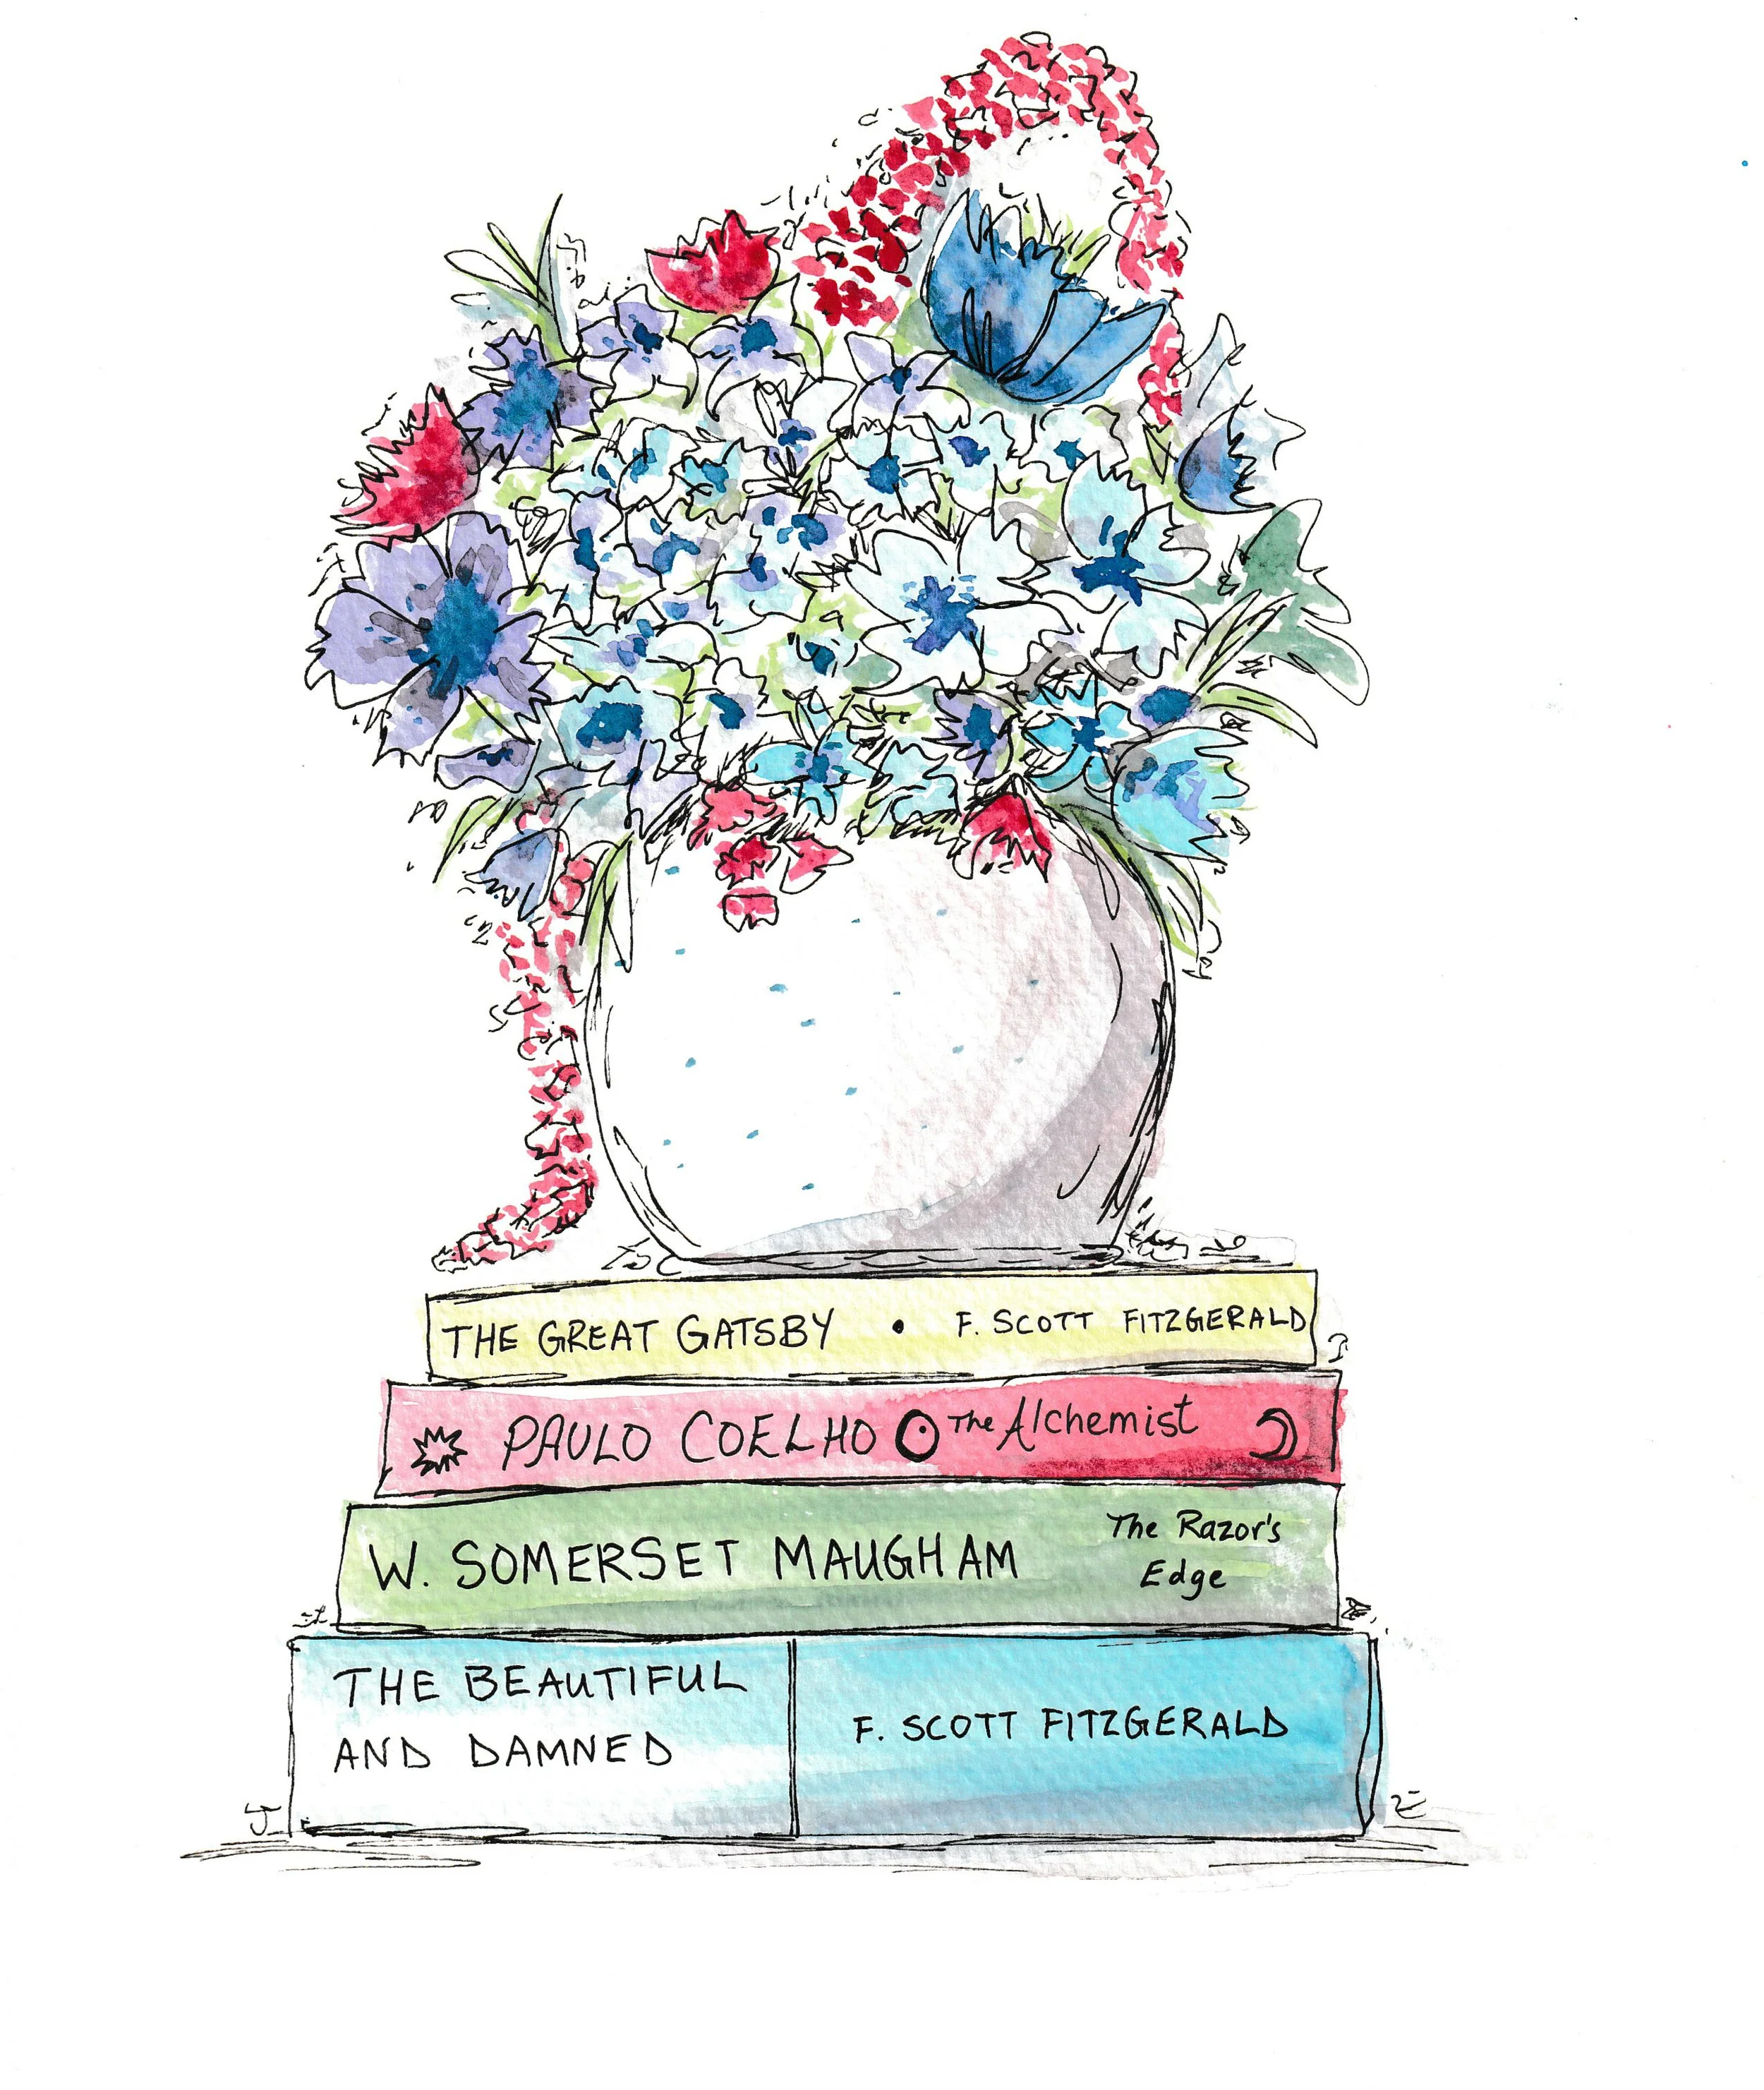 THE GREAT GATSBY • F. SCOTT FITZGERALD
PAULO COELHO The Alchemist
W. SOMERSET MAUGHAM The Razor's
Edge
THE BEAUTIFUL
AND DAMNED
F. SCOTT FITZGERALD